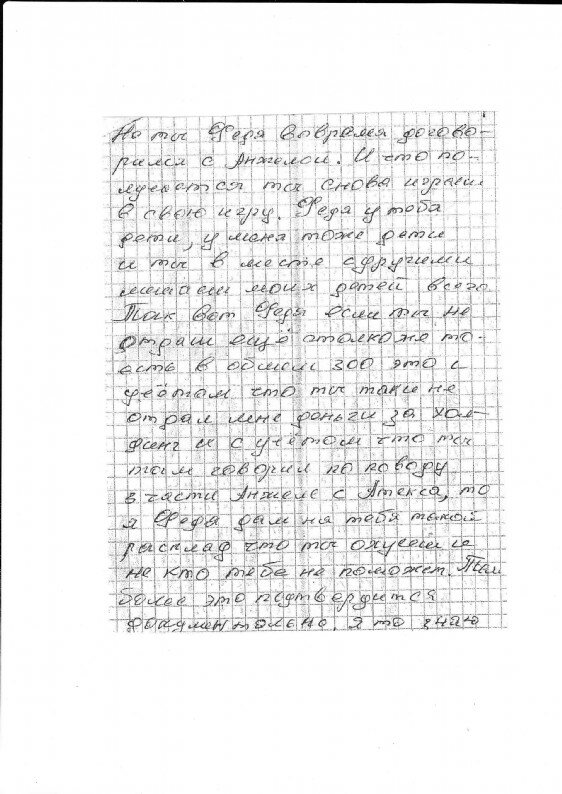 Но ты Федя вывремя догово-
рился с Анжелой. И что по-
лучается ты снова играеш
в свою игру. Федя у тебя
дети, у меня тоже дети
и ты в месте сдругими
лишаеш моих детей всего
Так вот Федя если ты не
отдаш ещё столкоже то-
есть в общем 300 это с
учётом что ты таки не
отдал мне деньги за хол-
динг и с учётом что ты
там говорил по поводу
з.части Анжеле с Атекса, то
я Федя дам на тебя такой
расклад что ты охуееш и
не кто тебе не поможет. Тем
более это подтвердится
документально. я то знаю